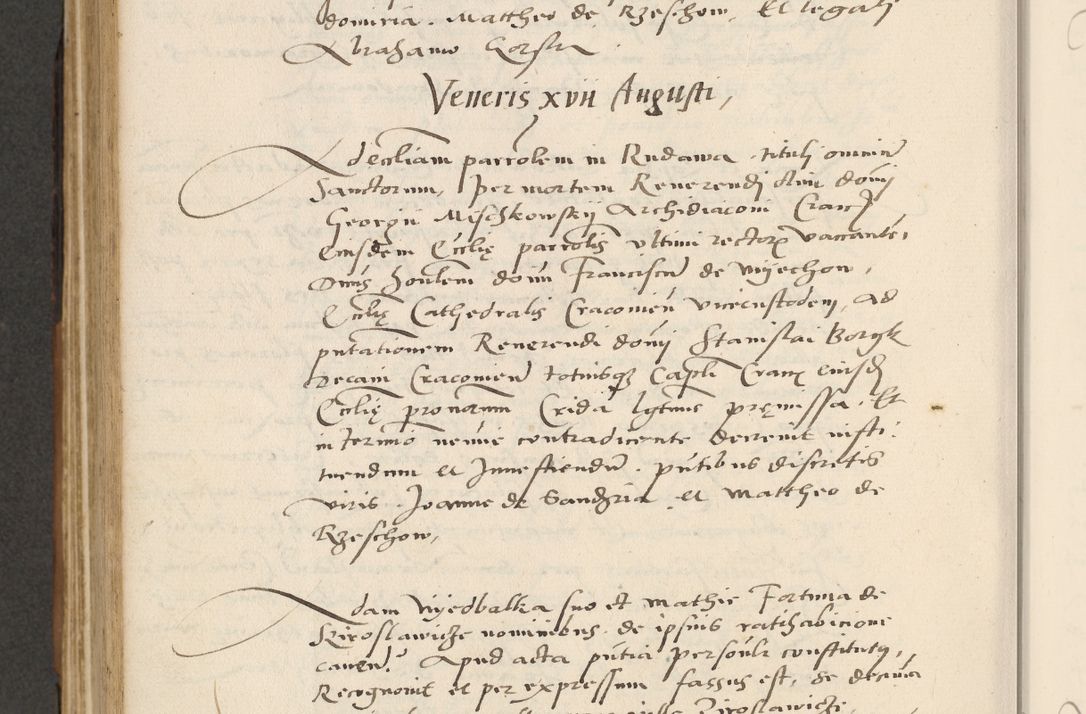 dominia. Mattheo de Rzeschow, Et legali
Abrahamo Gorsky.
Veneris xvii Augusti,
Ad eccliam parrolem in Rudawa tituli omniu
Sanctorum, per mortem Reverendi olim domini
Georgii Mischkowskij Archidiaconi Cracz
eiusdem Ecclię parrolis ultimi rectoris vacante,
Dnus domini Franciscu de Myechow,
Ecclię Cathedralis Cracovien vicecustodem, ad
putationem Reverendi domini Stanislai Borgk
Decani Cracovien totiusq Capli Crac eiusd
Ecclię pronarum Crida lgtmus pręmissa. Et
in termino nemine contradicente decrevit insti
tuendum et Investiendu. putibus discretis
viris Joanne de Sandzria et Mattheo de
Rzeschow,
Adam Nyedbalka suo et Mathie Fortuna de
Kiroslawicze nominibus de ipsius ratihabicione
caven. Apud acta putia personlr constituty,
Recognovit et per expressum fassus est, se decima
Ziroslawiczki,